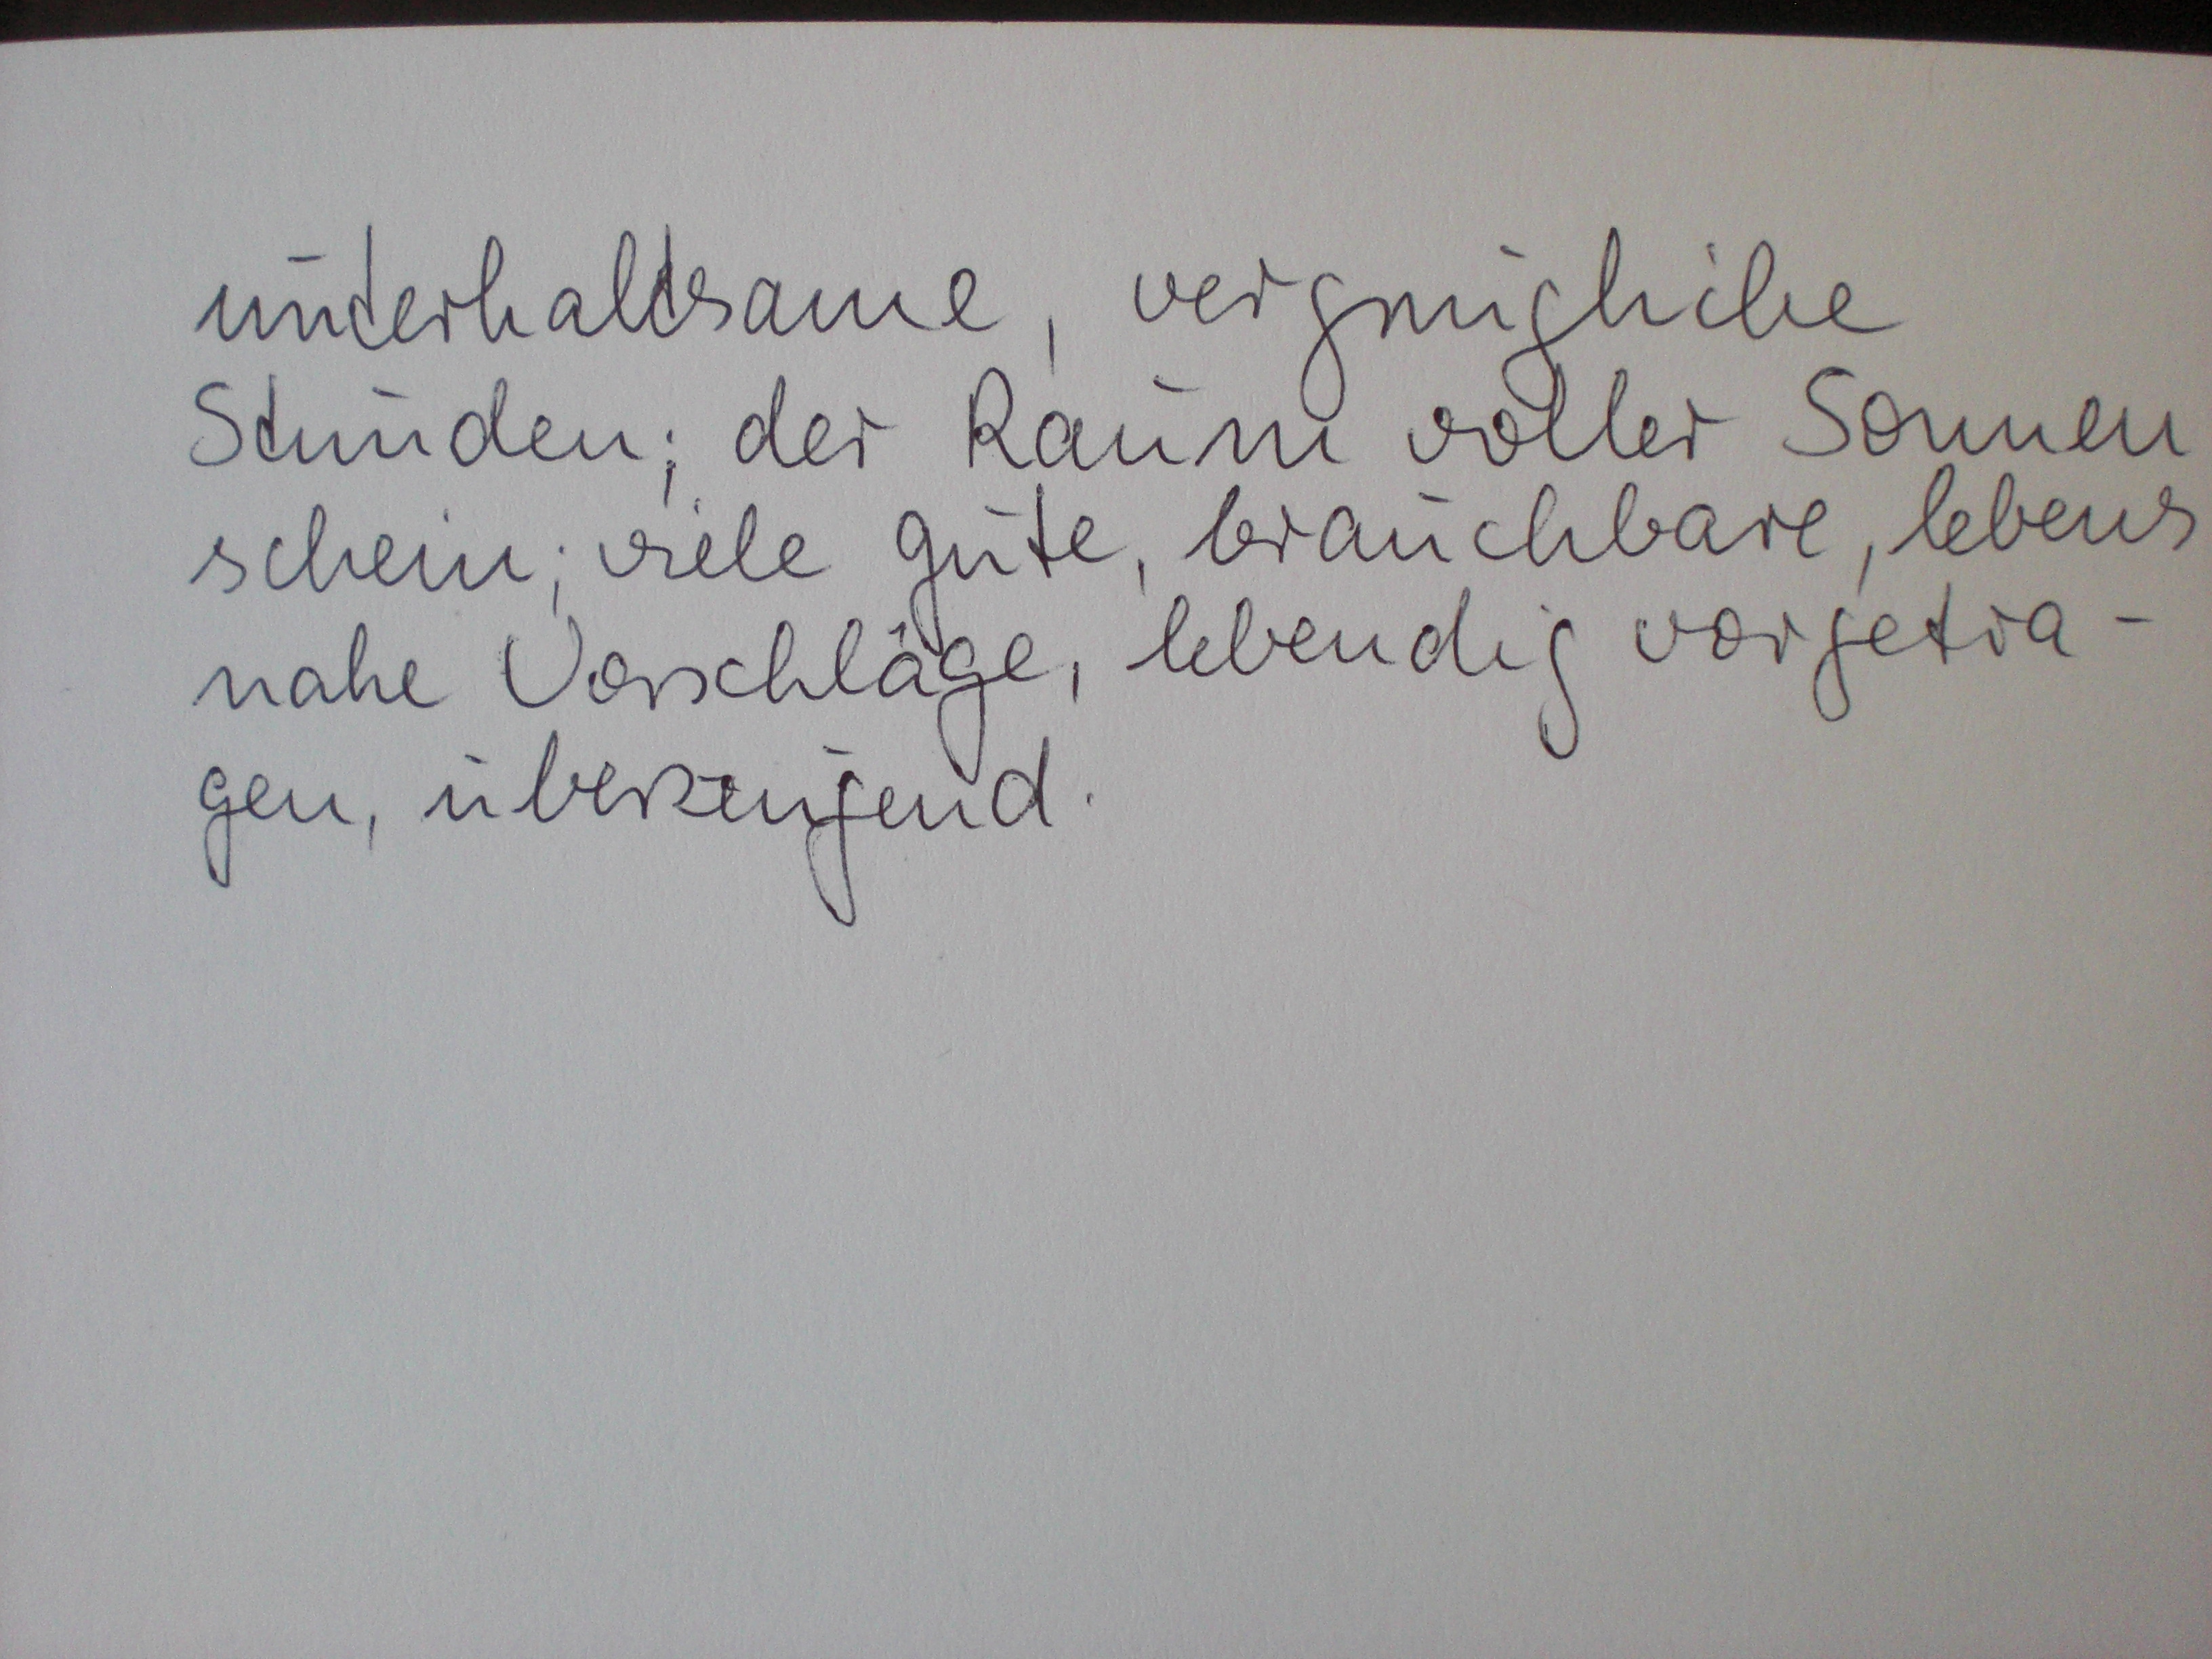 unterhaltsame, vergnügliche
Stunden; der Raum voller Sonnen
schein; viele gute, brauchbare, lebens
nahe Vorschläge, lebendig vorgetra-
gen, überzeugend.